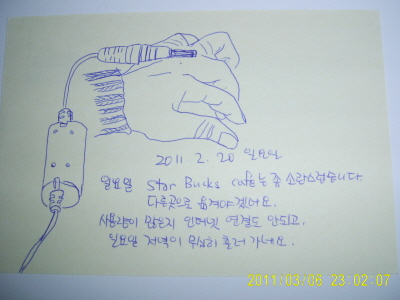 2011 2. 20 일요일
일요일 Star Bucks cafe는 좀 소란스럽습니다
다른곳으로 옮겨야겠어요.
사용량이 많은지 인터넷 연결도 안되고.
일요일 저녁이 무심히 흘러 가네요.
2011:03:06 23:02:07